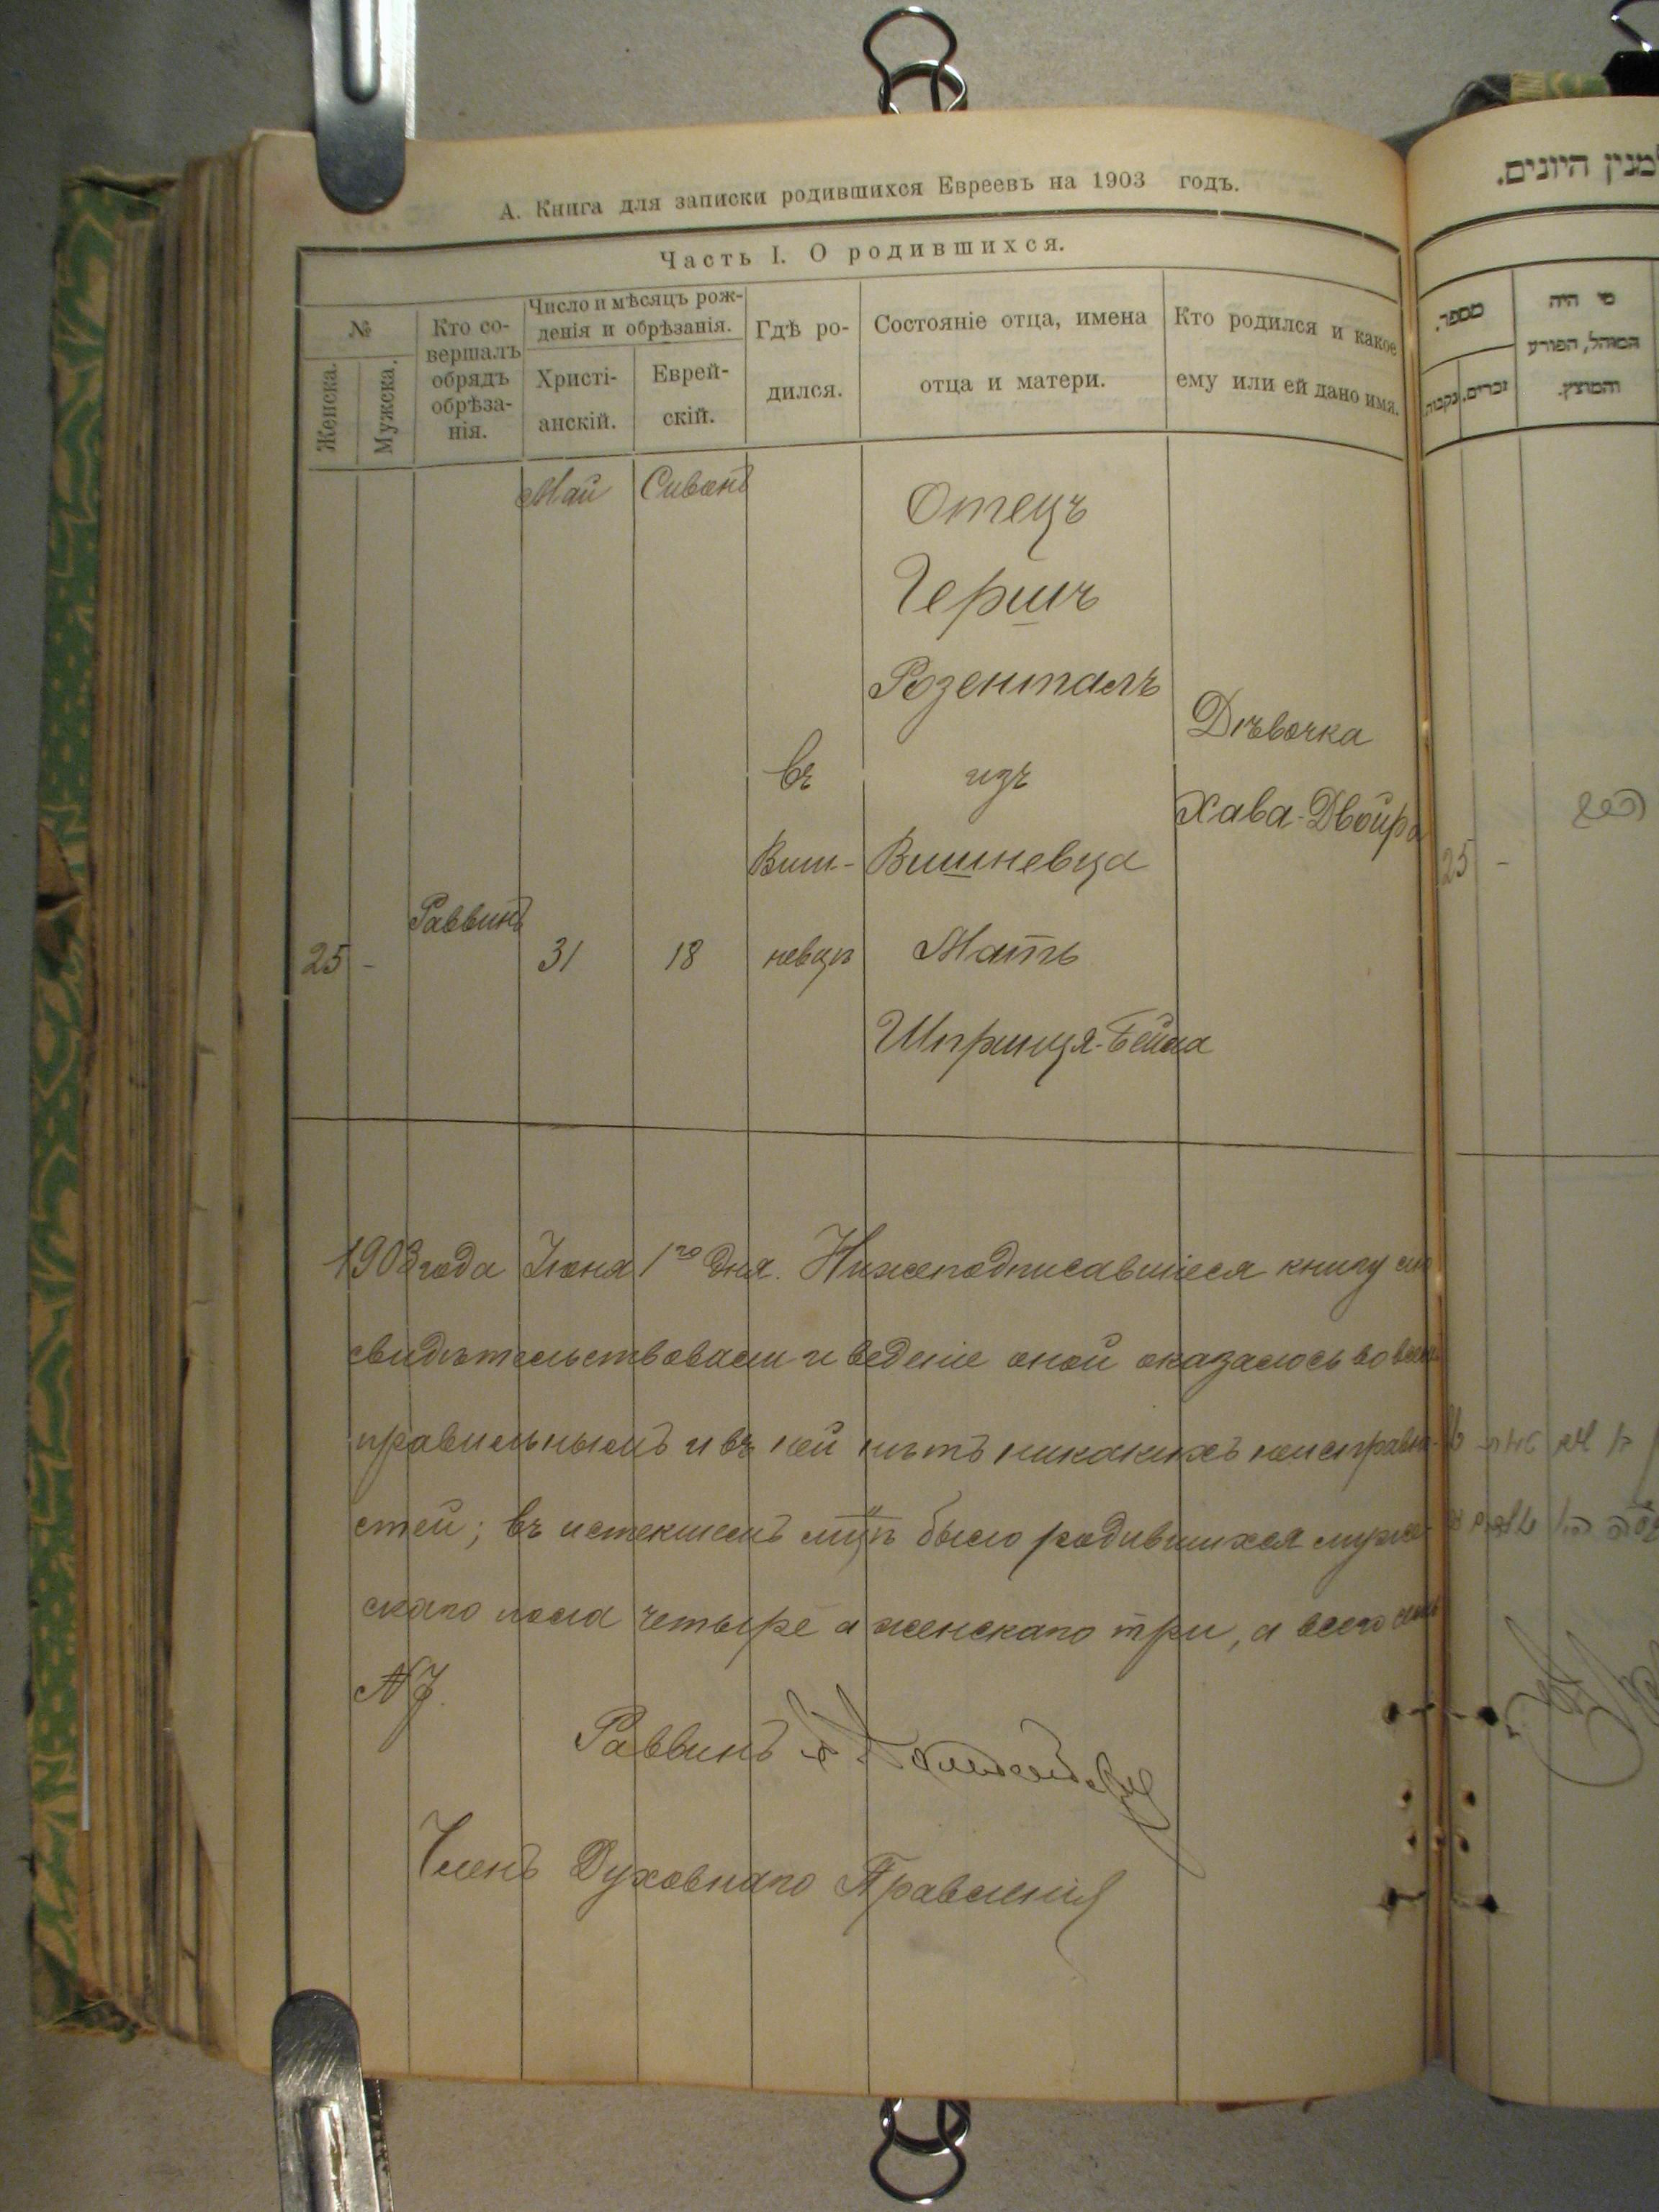 А. Книга для записки родившихся Евреевъ на 1903 годъ.
Часть I. О родившихся.
№
Женска.
Мужска.
Кто со-
вершалъ
обрядъ
обрѣза-
нія.
Число и мѣсяцъ рож-
денія и обрѣзанія.
Христі-
анскій.
Еврей-
скій.
Гдѣ ро-
дился.
Состояніе отца, имена
отца и матери.
Кто родился и какое
ему или ей дано имя.
Май
Сиванъ
25
-
Раввинъ
31
18
въ
Виш-
невцѣ
Отецъ
Гершъ
Розенталъ
изъ
Вишневца
Мать
Шпринця-Бейла
Дѣвочка
Хава-Двойра
1903 года Іюня 1го дня. Нижеподписавшіеся книгу сію
свидѣтельствовали и веденіе оной оказалось во всемъ
правильнымъ и въ ней нѣтъ никакихъ неисправно-
стей; въ истекшемъ мцѣ было родившихся муже-
скаго пола четыре а женскаго три, а всего семь
№ 7.
Раввинъ
Членъ Духовнаго Правленія
למנין היונים.
מספר.
נקבות.
זכרים.
מי היה
המוהל, הפורע
והמוצץ.
25
-